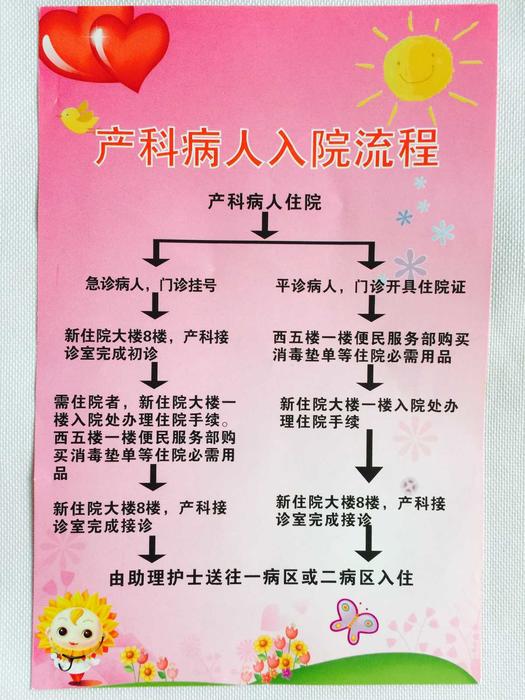 产科病人入院流程
产科病人住院
急诊病人，门诊挂号
新住院大楼8楼，产科接
诊室完成初诊
需住院者，新住院大楼一
楼入院处办理住院手续。
西五楼一楼便民服务部购
买消毒垫单等住院必需用
品
新住院大楼8楼，产科接
诊室完成接诊
平诊病人，门诊开具住院证
西五楼一楼便民服务部购买
消毒垫单等住院必需用品
新住院大楼一楼入院处办
理住院手续
新住院大楼8楼，产科接
诊室完成接诊
由助理护士送往一病区或二病区入住